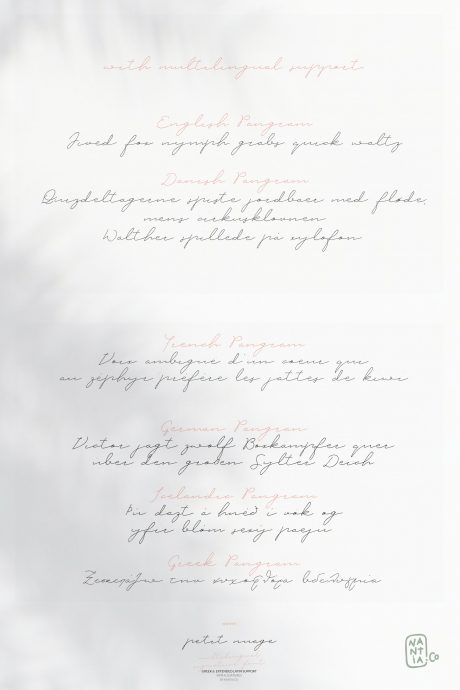 with multilingual support
English Pangram
Jived fox nymph grabs quick waltz
Danish Pangram
Quizdeltagerne spiste jordbær med fløde,
mens cirkusklovnen
Walther spillede på xylofon
French Pangram
Voix ambiguë d'un coeur qui
au zéphyr préfère les jattes de kiwi
German Pangram
Victor jagt zwölf Boxkämpfer quer
über den großen Sylter Deich
Icelandic Pangram
Þú dazt á hnéð í vok og
yfir blóm sexý pæju
Greek Pangram
Ξεσκεπάζω την ψυχοφθόρα βδελυγμία
petit nuage
GREEK & EXTENDED LATIN SUPPORT
NANTIA.Co